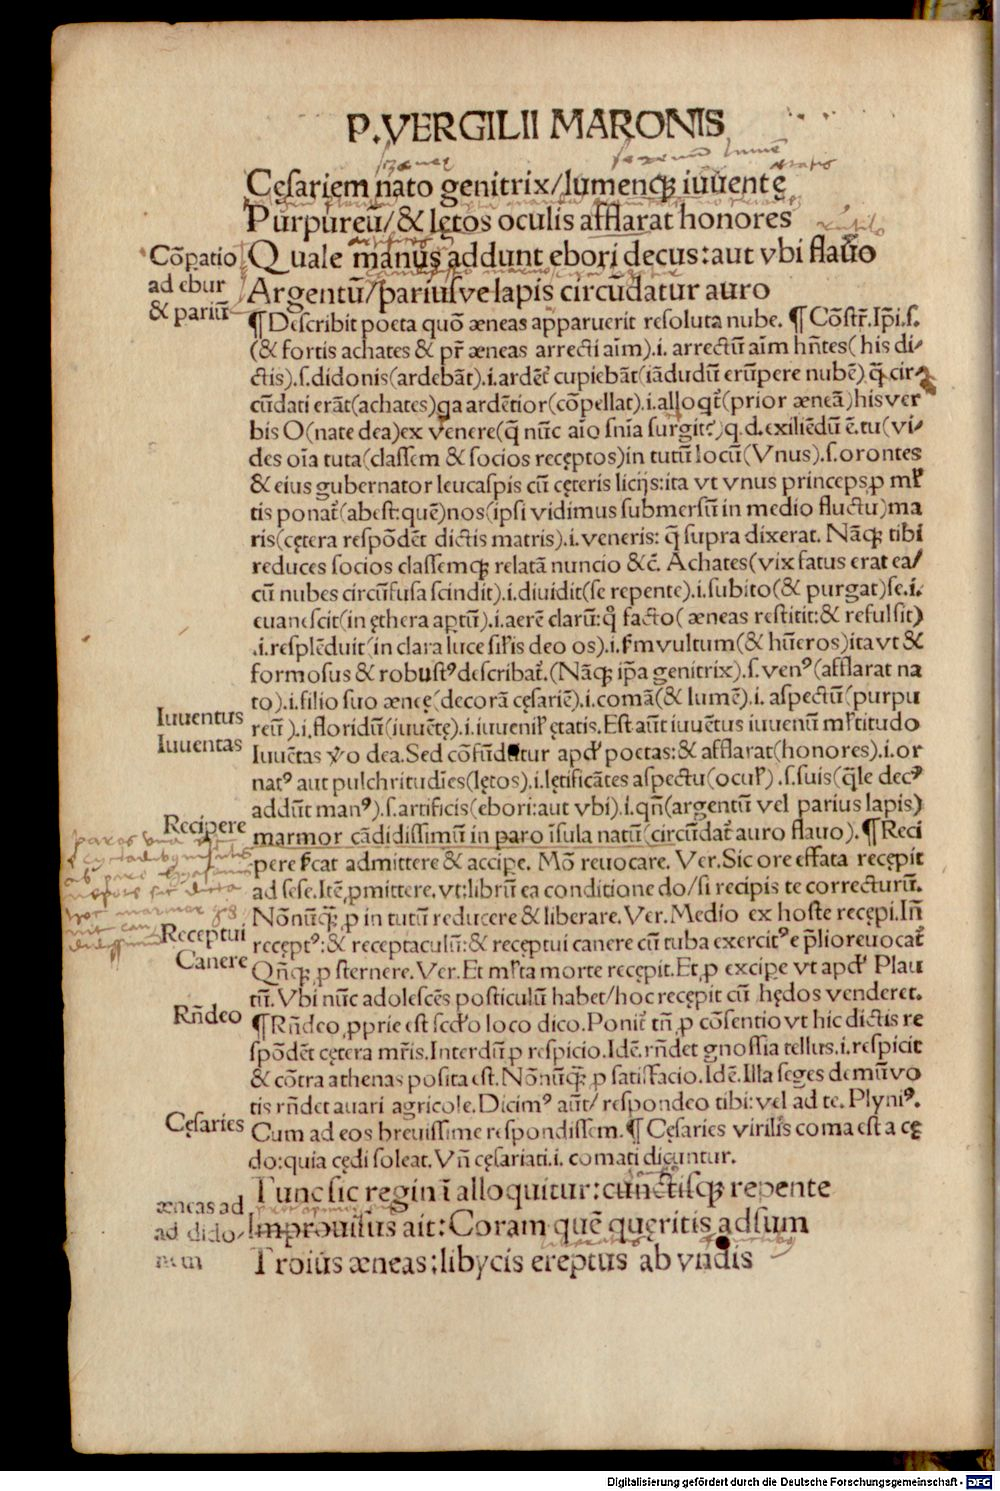 P.VERGILII MARONIS
Cęsariem nato genitrix/lumenq; iuuentę
Purpureū/& lętos oculis afflarat honores
Cōpatio
Quale manus addunt ebori decus:aut vbi flauo
ad ebur
Argentū/pariusue lapis circūdatur auro
& pariū
¶Describit poeta quō æneas apparuerit resoluta nube. ¶Cōstr̄.Ip̄i.s.
(& fortis achates & pr̄ æneas arrecti aīm).i. arrectū aīm hn̄tes(his di/
ctis).s.didonis(ardebāt).i.ardēt̄ cupiebāt(iādudū erūpere nubē) q̄ cir
cūdati erāt(achates)qa ardētior(cōpellat).i.alloqt̄(prior æneā)his ver
bis O(nate dea)ex venere(q̄ nūc aīo snīa surgit?)q.d.exiliēdū ē.tu(vi/
des oīa tuta(classem & socios recęptos)in tutū locū(Vnus).s.orontes
& eius gubernator leucaspis cū cęteris licijs:ita vt vnus princeps p ml̄
tis ponat̄(abest:quē)nos(ipsi vidimus submersū in medio fluctu)ma
ris(cętera respōdēt dictis matris).i.veneris: q̄ supra dixerat. Nāq; tibi
reduces socios classemq; relatā nuncio &c̄. Achates(vix fatus erat ea/
cū nubes circūfusa scindit).i.diuidit(se repente).i.subito(& purgat)se.i.
euanescit(in ęthera aptū).i.aerē clarū:q̊ facto(æneas restitit:& refulsit)
.i.resplēduit(in clara luce sil̄is deo os).i.fm vultum(& hūeros)ita vt &
formosus & robustꝰ describat̄.(Nāq; ip̄a genitrix).s.venꝰ(afflarat na
to).i.filio suo æneę(decorā cęsariē).i.comā(& lumē).i. aspectū(purpu
Iuuentus
reū).i.floridū(iuuētę).i.iuuenil̄ ętatis.Est aūt iuuētus iuuenū ml̄titudo
Iuuentas
Iuuētas v̊o dea.Sed cōfūdūtur apd̄ poetas:& afflarat(honores).i.or
natꝰ aut pulchritudīes(lętos).i.lętificātes aspectu(ocul̄).s.suis(q̄le decꝰ
addūt manꝰ).s.artificis(ebori:aut vbi).i.qn̄(argentū vel parius lapis)
Recipere
marmor cādidissimū in paro īsula natū(circūdat̄ auro flauo).¶Reci
pere s̄cat admittere & accipe. Mō reuocare. Ver.Sic ore effata recępit
ad sese.Itē pmittere.vt:librū ea conditione do/si recipis te correcturū.
Nōnūq; p in tutū reducere & liberare.Ver.Medio ex hoste recępi.In̄
Receptui
recęptꝰ:& receptaculū:& recęptui canere cū tuba exercitꝰ e plio reuocat̄
Canere
Qn̄q; p sternere.Ver.Et ml̄ta morte recępit.Et p excipe vt apd̄ Plau
tū.Vbi nūc adolescēs posticulū habet/hoc recępit cū hędos venderet.
Rn̄deo
¶Rn̄deo pprie est scd̄o loco dico.Ponit̄ tn̄ p cōsentio vt hic dictis re
spōdēt cętera mr̄is.Interdū p respicio.Idē.rn̄det gnossia tellus.i.respicit
& cōtra athenas posita est.Nōnūq; p satisfacio.Idē.Illa seges demū vo
tis rn̄det auari agricolę.Dicimꝰ aūt/respondeo tibi:vel ad te.Plyniꝰ.
Cęsaries
Cum ad eos breuissime respondissem.¶Cęsaries virilis coma est a cę
do:quia cędi soleat.Vn̄ cęsariati.i. comati dicuntur.
Tunc sic reginī alloquitur:cunctisq; repente
æneas ad
Improuisus ait:Coram quē quęritis adsum
ad dido/
Troius æneas:libycis ereptus ab vndis
nem
Digitalisierung gefördert durch die Deutsche Forschungsgemeinschaft - DFG